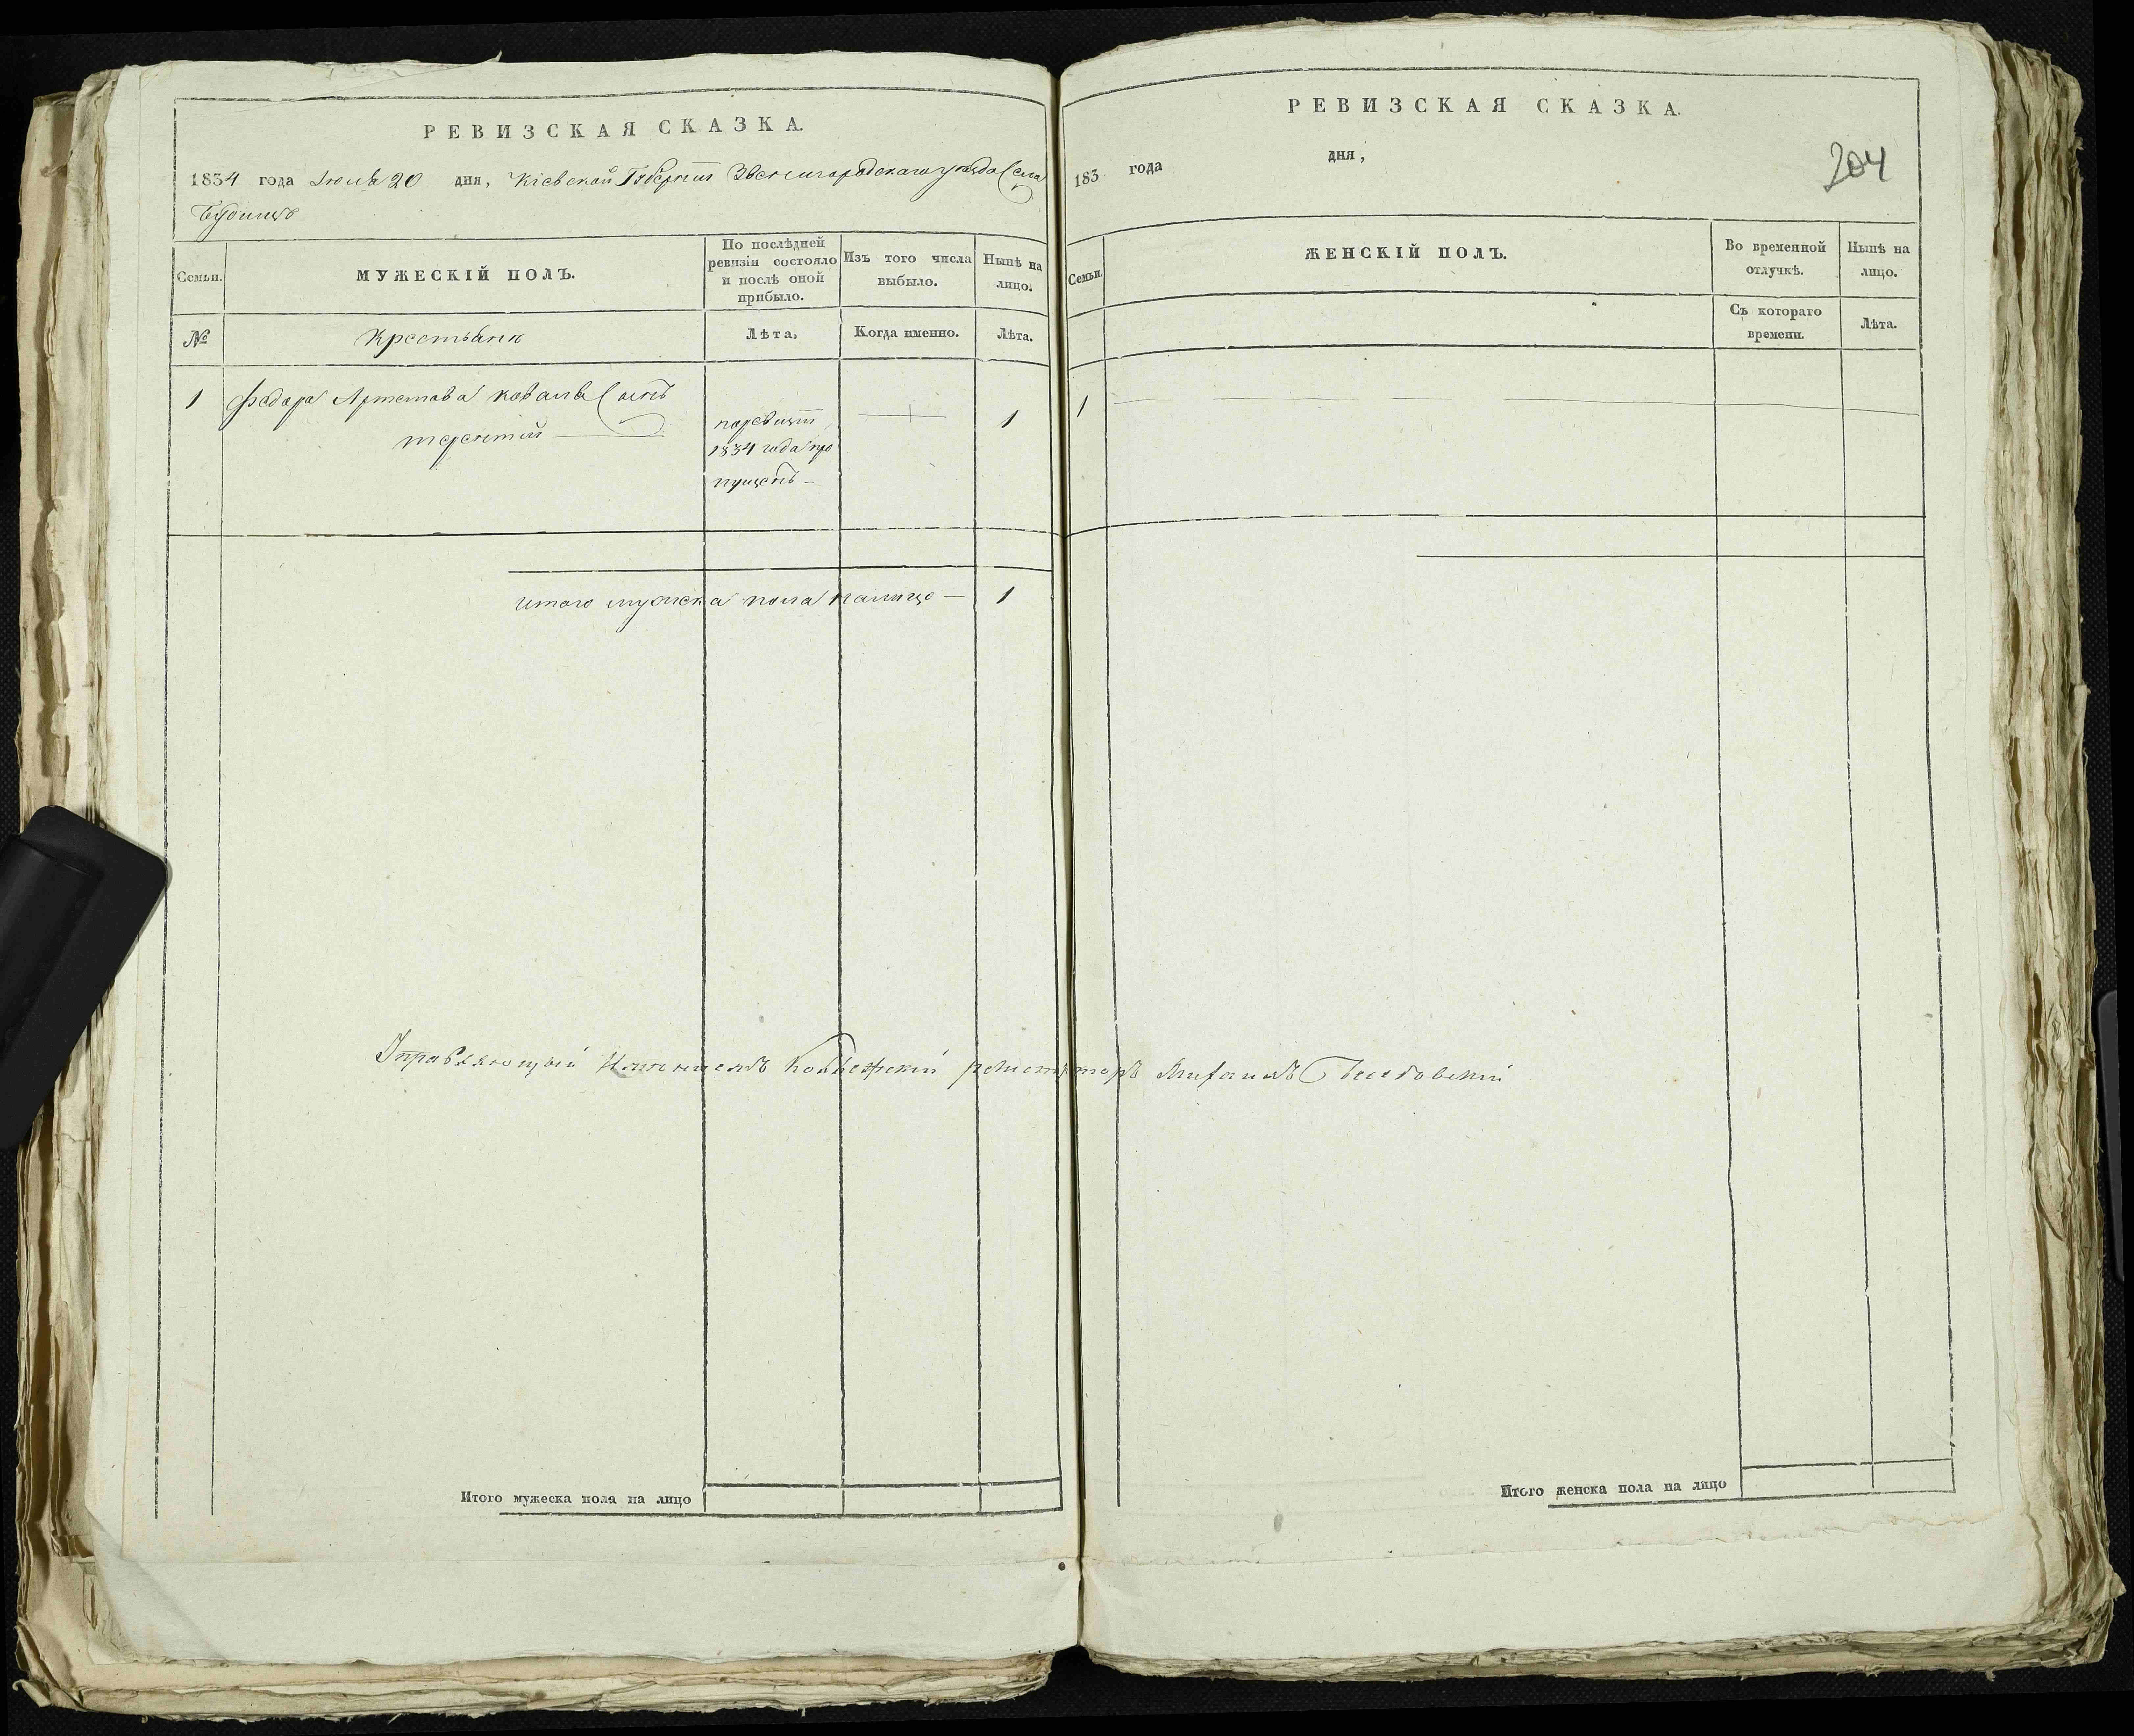 РЕВИЗСКАЯ СКАЗКА.
1834 года Июля 20 дня, Кіевской Губерніи Звенигородскаго уѣзда Села
Будищъ
Семьи.
МУЖЕСКІЙ ПОЛЪ.
По послѣдней
ревизіи состояло
и послѣ оной
прибыло.
Изъ того числа
выбыло.
Нынѣ на
лицо.
№
Крестьяне
Лѣта.
Когда именно.
Лѣта.
1 Федора Артемова Коваля Сынъ
терентий
поревизіи
1834 года про
пущенъ
1
итого мужеска пола налицо 1
Управляющый Имениемъ Коллежскій регистраторъ Михаилъ
Итого мужеска пола на лицо
РЕВИЗСКАЯ СКАЗКА.
183 года дня,
204
Семьи.
ЖЕНСКІЙ ПОЛЪ.
Во временной
отлучкѣ.
Нынѣ на
лицо.
Съ котораго
времени.
Лѣта.
1
Итого женска пола на лицо